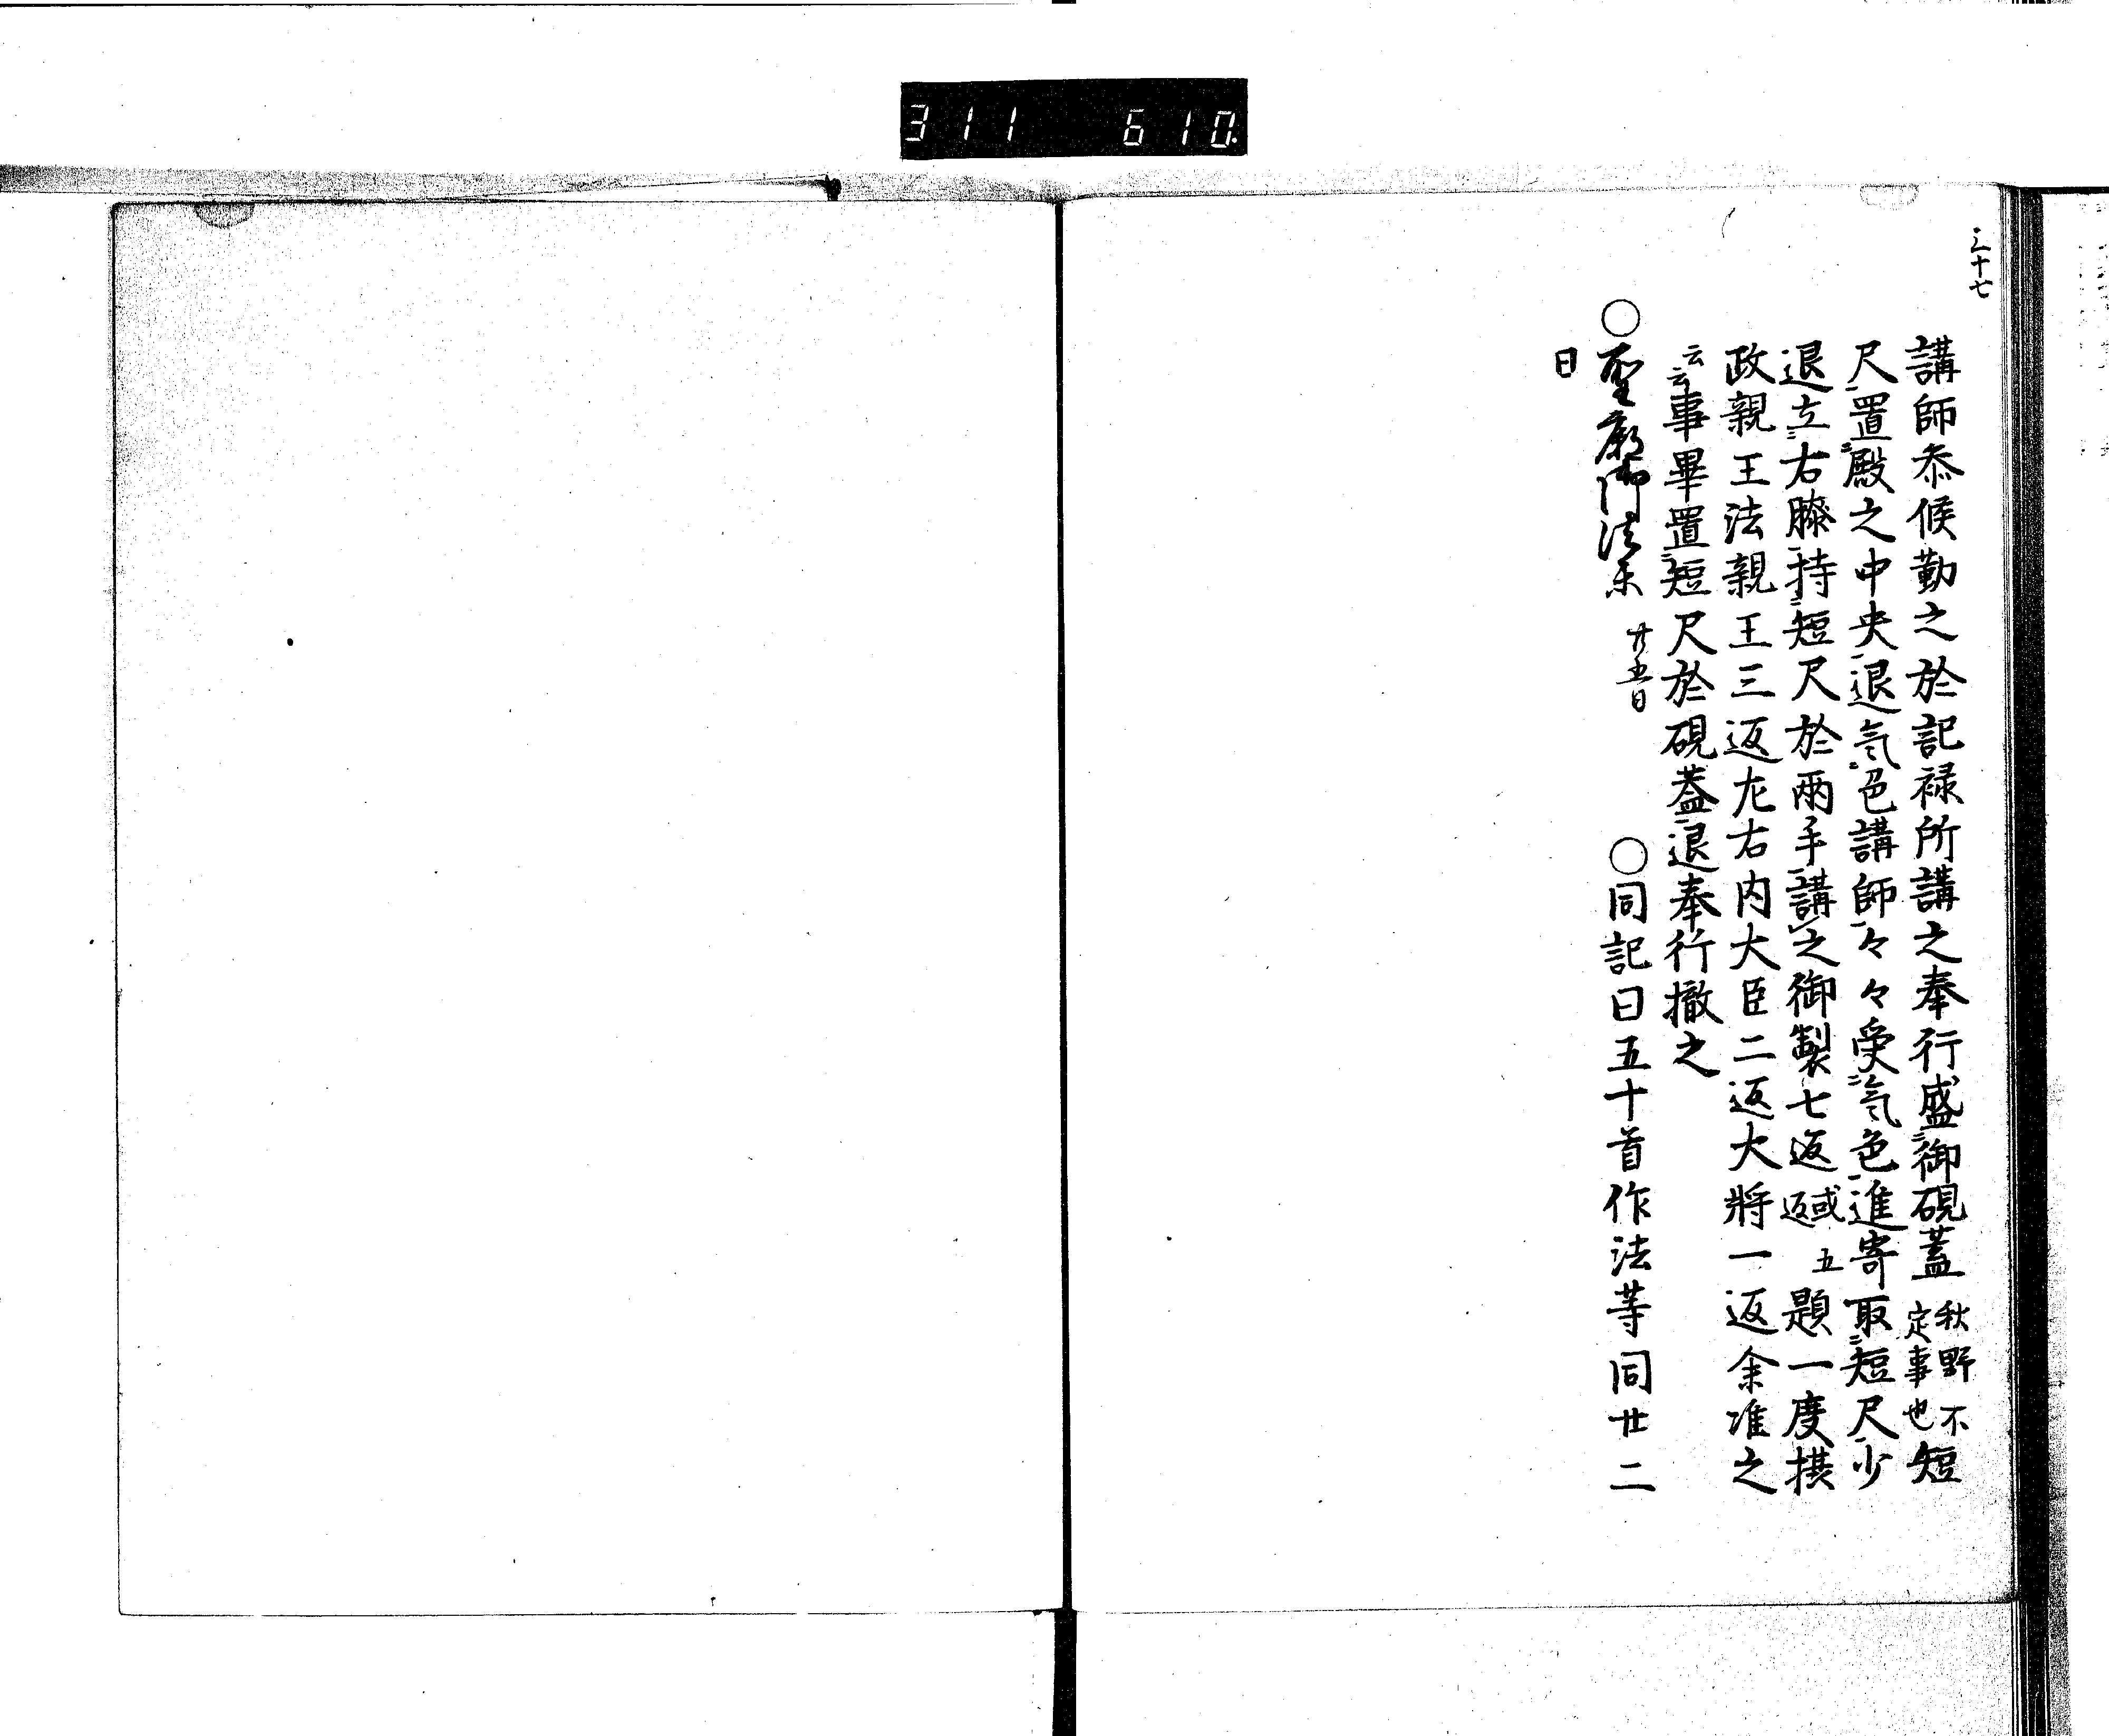 311 610.
三十七
講師参候勤之於記禄所講之奉行盛御硯蓋秋野不定事也短
尺置殿之中央退気色講師々々受気色進寄取短尺少
退立右膝持短尺於兩手講之御製七返或五返題一度摂
政親王法親王三返左右内大臣二返大將一返余准之
云云事畢置短尺於硯蓋退奉行撤之
○聖廟御法楽 廿五日 ○同記曰五十首作法等同廿二
日